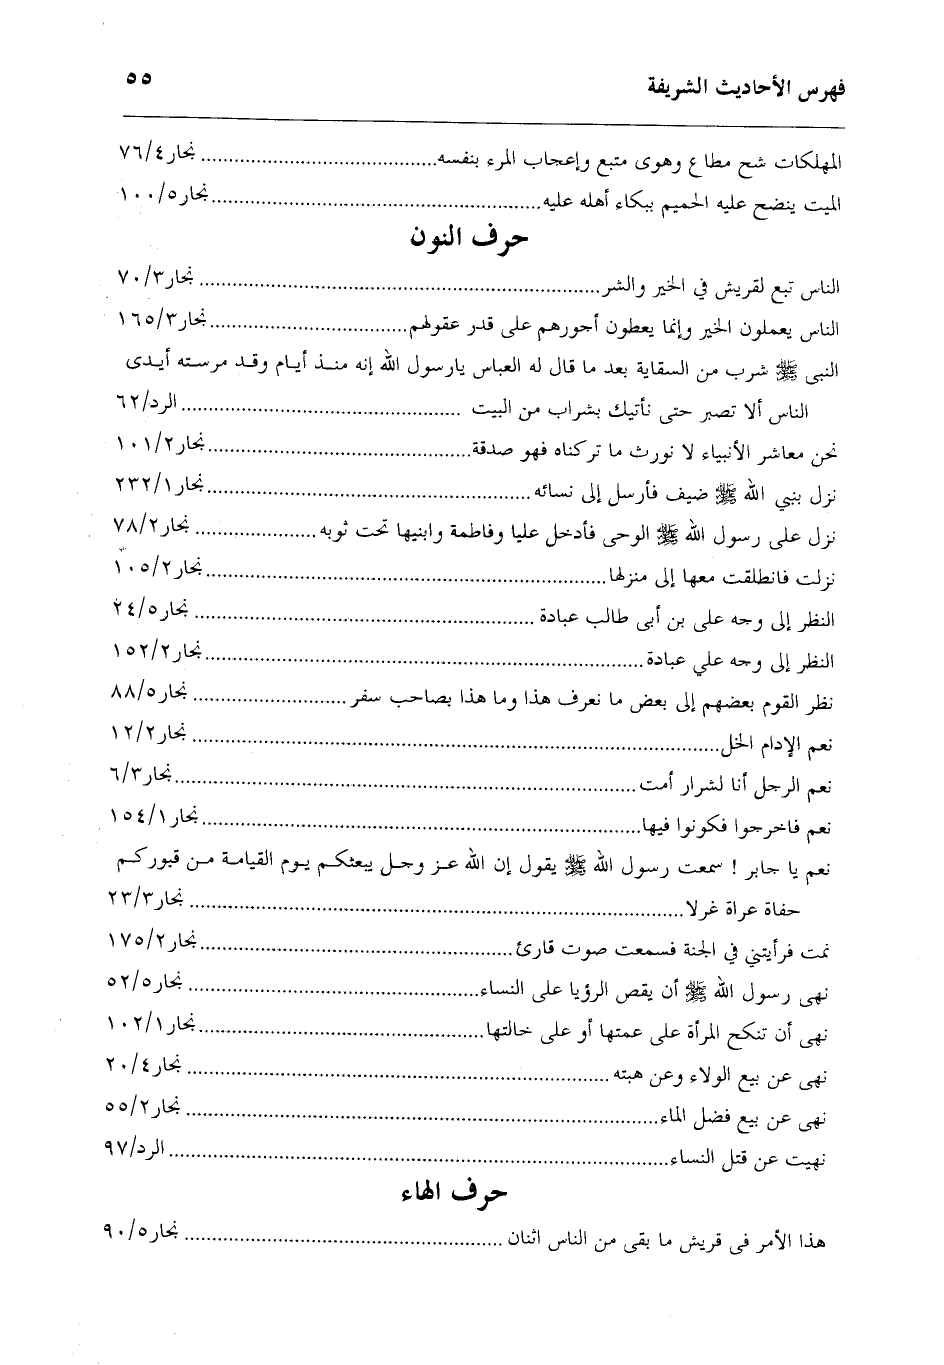 فهرس الأحاديث الشريفة ٥٥
المهلكات شح مطاع وهوى متبع وإعجاب المرء بنفسه....................نجار٧٦/٤
الميت ينضح عليه الحميم ببكاء أهله عليه....................نجار١٠٠/٥
حرف النون
الناس تبع لقريش في الخير والشر....................نجار٧٠/٣
الناس يعملون الخير وإنما يعطون أجورهم على قدر عقولهم....................نجار١٦٥/٣
النبي ﷺ شرب من السقاية بعد ما قال له العباس يارسول الله إنه منذ أيام وقد مرسته أيدى
الناس ألا تصبر حتى نأتيك بشراب من البيت ....................الرد/٦٢
نحن معاشر الأنبياء لا نورث ما تركناه فهو صدقة....................نجار١٠١/٢
نزل بنبي الله ﷺ ضيف فأرسل إلى نسائه....................نجار٢٣٢/١
نزل على رسول الله ﷺ الوحى فأدخل عليا وفاطمة وابنيها تحت ثوبه....................نجار٧٨/٢
نزلت فانطلقت معها إلى منزلها....................نجار١٠٥/٢
النظر إلى وجه على بن أبى طالب عبادة....................نجار٢٤/٥
النظر إلى وجه علي عبادة....................نجار١٥٢/٢
نظر القوم بعضهم إلى بعض ما نعرف هذا وما هذا بصاحب سفر....................نجار٨٨/٥
نعم الإدام الخل....................نجار١٢/٢
نعم الرجل أنا لشرار أمت....................نجار٦/٣
نعم فاخرجوا فكونوا فيها....................نجار١٥٤/١
نعم يا جابر ! سمعت رسول الله ﷺ يقول إن الله عز وجل يبعثكم يوم القيامة من قبوركم
حفاة عراة غرلا....................نجار٢٣/٣
نمت فرأيتني في الجنة فسمعت صوت قارئ....................نجار١٧٥/٢
نهى رسول الله ﷺ أن يقص الرؤيا على النساء....................نجار٥٢/٥
نهى أن تنكح المرأة على عمتها أو على خالتها....................نجار١٠٢/١
نهى عن بيع الولاء وعن هبته....................نجار٢٠/٤
نهى عن بيع فضل الماء....................نجار٥٥/٢
نهيت عن قتل النساء....................الرد/٩٧
حرف الهاء
هذا الأمر فى قريش ما بقى من الناس اثنان....................نجار٩٠/٥